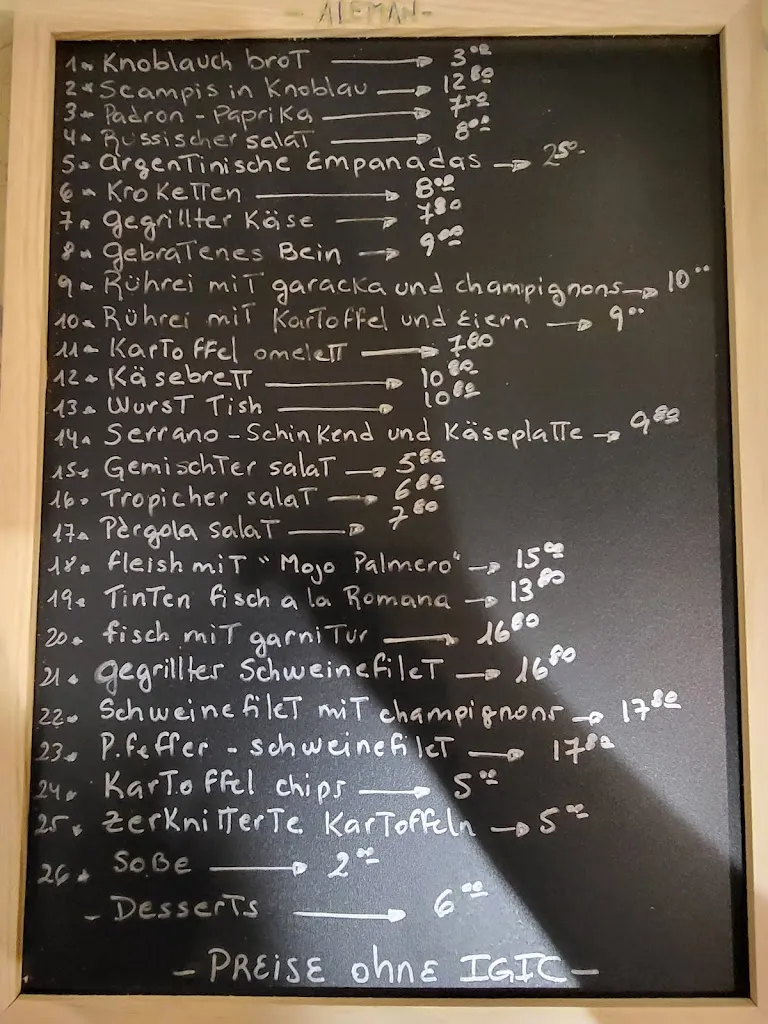 - ALEMAN -
1- Knoblauch brot → 3⁰⁰
2- Scampis in Knoblau → 12⁸⁰
3- Padron - Paprika → 7⁵⁰
4- Russischer salat → 8⁰⁰
5- argentinische Empanadas → 2⁵⁰-
6- Kroketten → 8⁰⁰
7- gegrillter Käse → 7⁸⁰
8- gebratenes Bein → 9⁰⁰
9- Rührei mit garacka und champignons → 10⁰⁰
10- Rührei mit Kartoffel und Eiern → 9⁰⁰
11- Kartoffel omelett → 7⁸⁰
12- Käsebrett → 10⁸⁰
13- Wurst Tish → 10⁸⁰
14- Serrano-Schinkend und Käseplatte → 9⁸⁰
15- Gemischter salat → 5⁸⁰
16- Tropicher salat → 6⁸⁰
17- Pèrgola salat → 7⁸⁰
18- fleish mit "Mojo Palmero" → 15⁰⁰
19- Tinten fisch a la Romana → 13⁸⁰
20- fisch mit garnitur → 16⁸⁰
21- gegrillter Schweinefilet → 16⁸⁰
22- Schweinefilet mit champignons → 17⁸⁰
23- P.feffer - schweinefilet → 17⁸⁰
24- Kartoffel chips → 5⁰⁰
25- zerknitterte Kartoffeln → 5⁰⁰
26- Soße → 2⁰⁰
- Desserts → 6⁰⁰
- PREISE ohne IGIC -